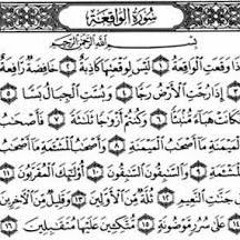 سُورَةُ الوَاقِعَةِ
بِسْمِ اللَّهِ الرَّحْمَٰنِ الرَّحِيمِ
ذَا وَقَعَتِ الْوَاقِعَةُ ١ لَيْسَ لِوَقْعَتِهَا كَاذِبَةٌ ٢ خَافِضَةٌ رَّافِعَةٌ
٣ إِذَا رُجَّتِ الْأَرْضُ رَجًّا ٤ وَبُسَّتِ الْجِبَالُ بَسًّا ٥
كَانَتْ هَبَاءً مُّنبَثًّا ٦ وَكُنتُمْ أَزْوَاجًا ثَلَاثَةً ٧ فَأَصْحَابُ
الْمَيْمَنَةِ مَا أَصْحَابُ الْمَيْمَنَةِ ٨ وَأَصْحَابُ الْمَشْأَمَةِ مَا أَصْحَابُ
الْمَشْأَمَةِ ٩ وَالسَّابِقُونَ السَّابِقُونَ ١٠ أُولَٰئِكَ الْمُقَرَّبُونَ ١١
جَنَّاتِ النَّعِيمِ ١٢ ثُلَّةٌ مِّنَ الْأَوَّلِينَ ١٣ وَقَلِيلٌ مِّنَ الْآخِرِينَ
١٤ عَلَىٰ سُرُرٍ مَّوْضُونَةٍ ١٥ مُّتَّكِئِينَ عَلَيْهَا مُتَقَابِلِينَ ١٦